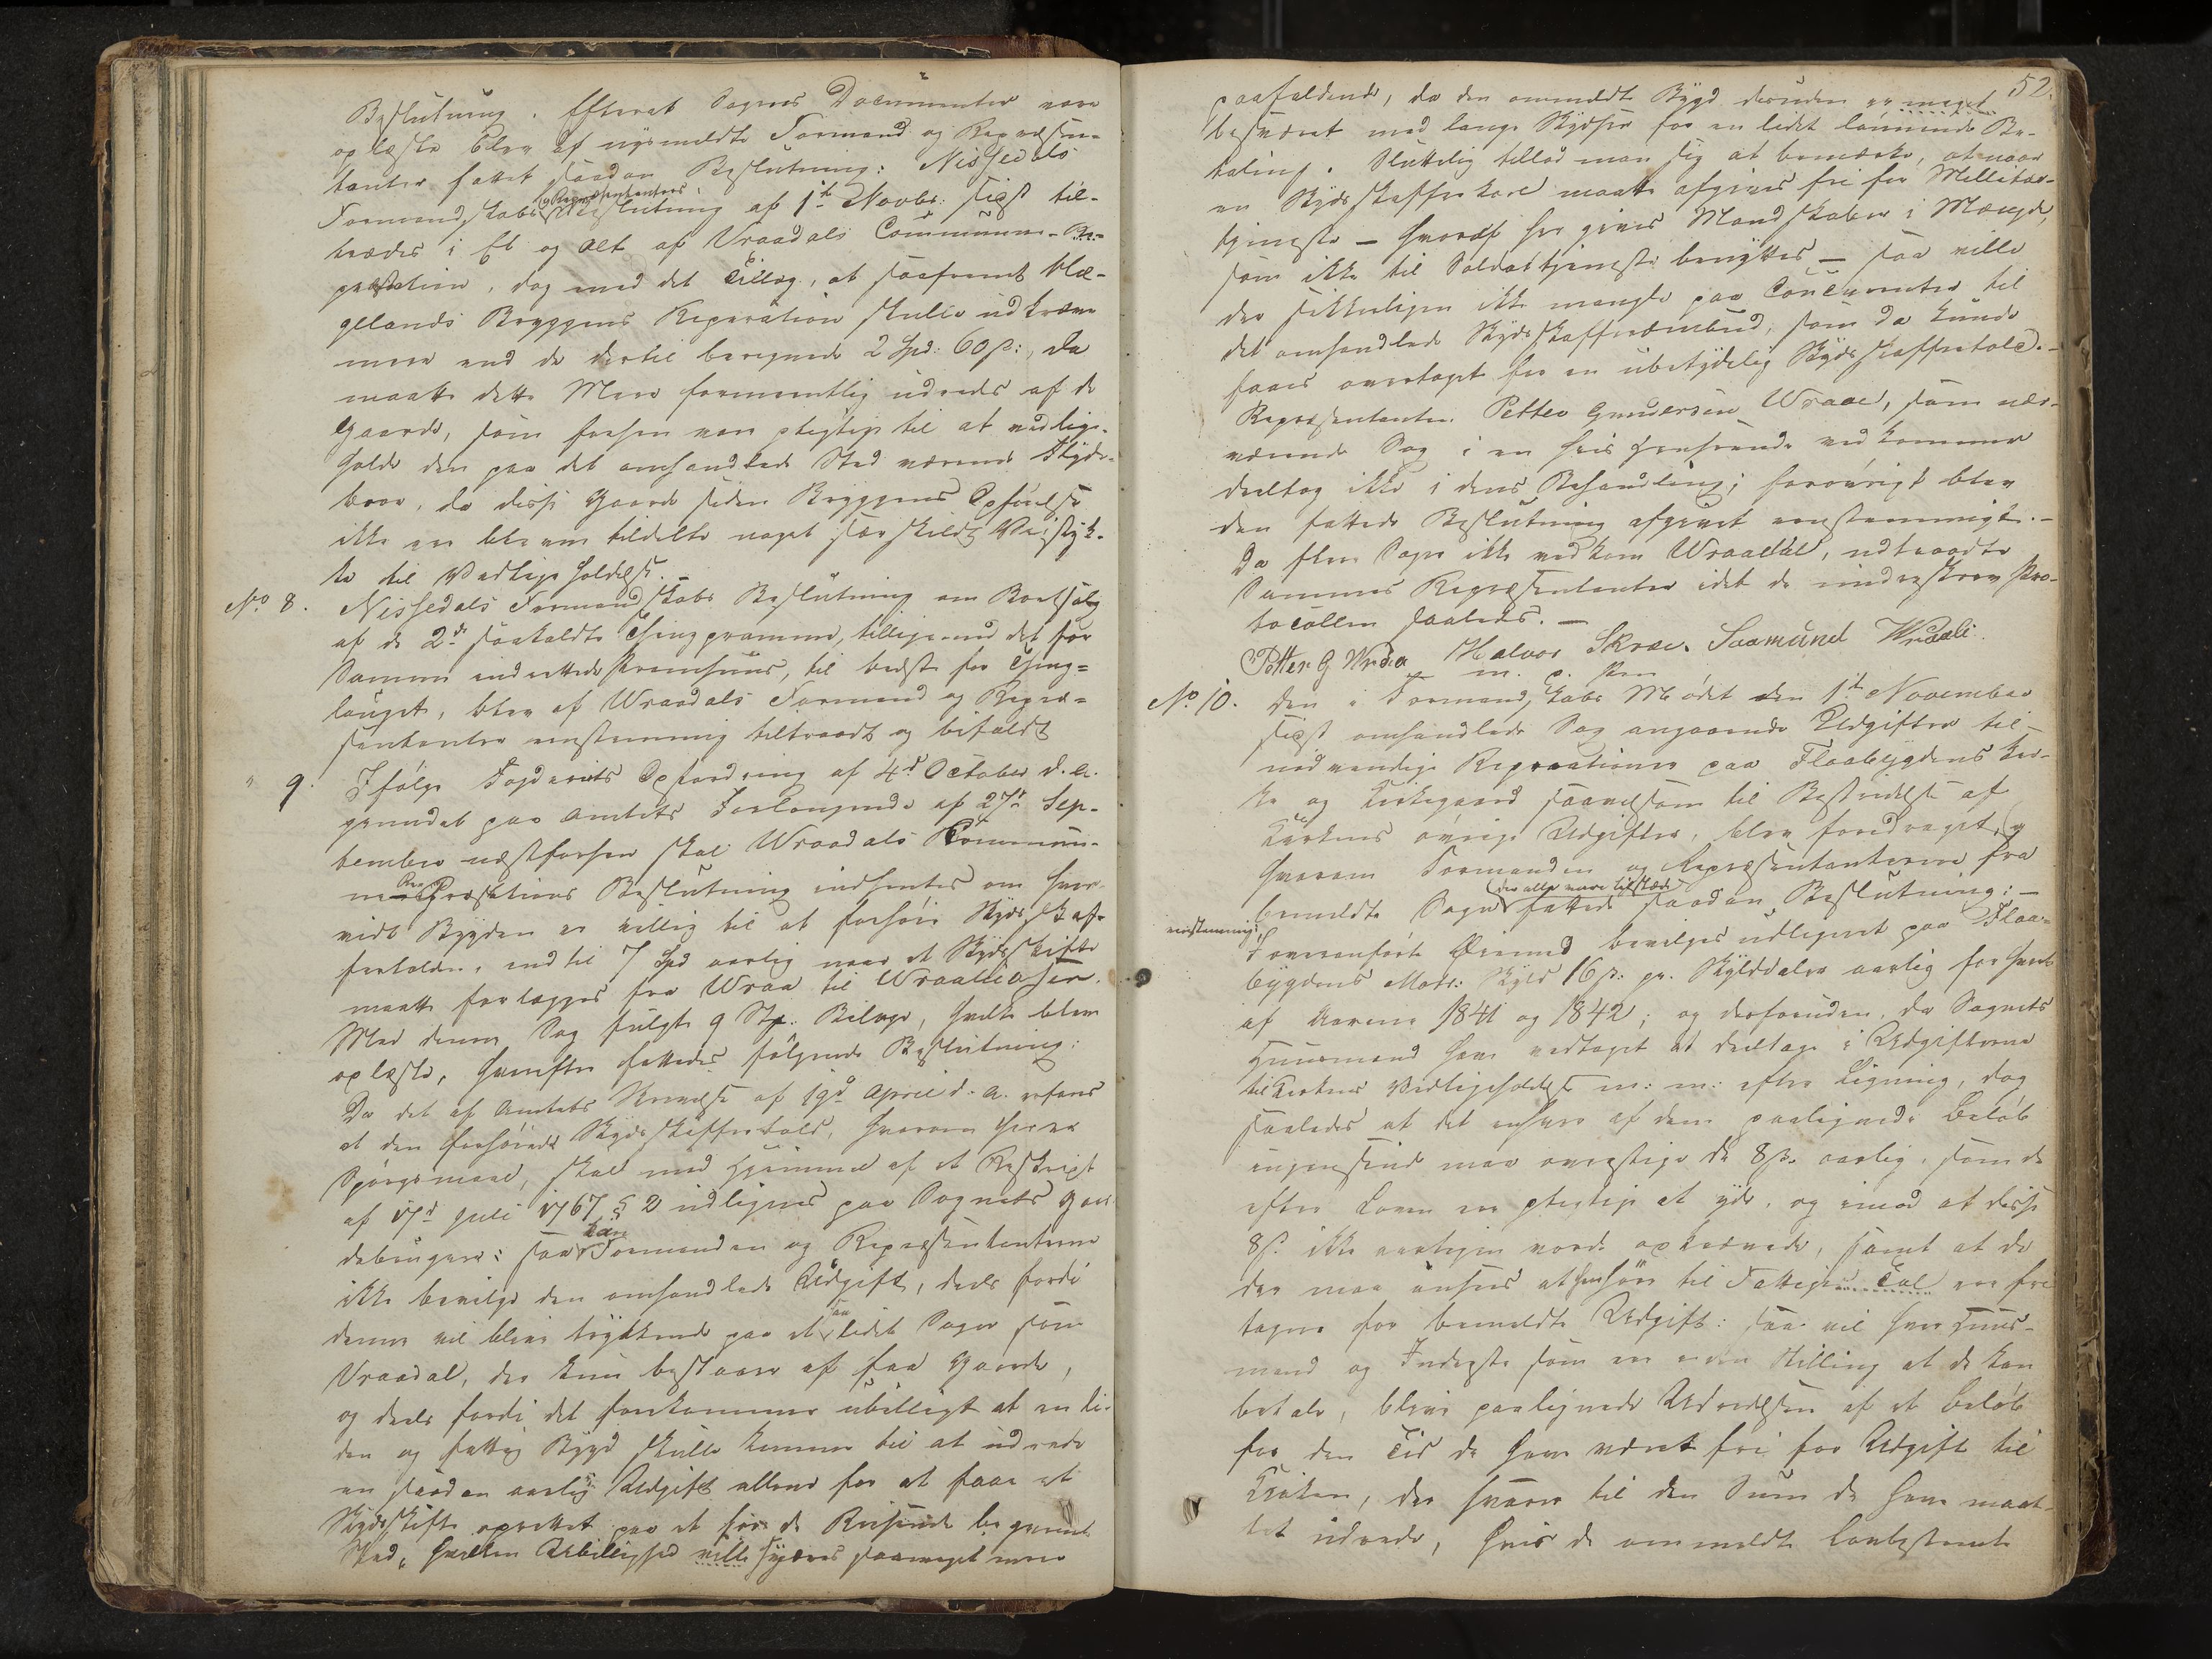 Beslutning. Efterat Sagens Documenter vare
oplæste blev af nysmeldte Formænd og Repræsen-
tanter fattet saadan Beslutning: Nissedals
Formandskabs og Repræsentanters Beslutning af 1ste Novbr: sidst til-
trædes i Et og Alt af Vraadals Communne-Re-
præsention, dog med det Tillæg, at saafremt
gelands Bryggens Reparation skulle udkræve
mere end de dertil beregnede 2 Spd: 60 s:, da
maatte dette Mere formeentlig udredes af de
Gaarde, som forhen vare pligtige til at vedlige-
holde den paa det omhandlede Sted værende
da disse Gaarde siden Bryggens Opførelse
ikke ere blevne tildelte noget særskildt Veistyk-
ke til Vedligeholdelse.
No 8. Nissedals Formandskabs Beslutning om Bortsalg
af de 2de saakaldte Thingpramme, tilligemed det for
Samme indrettede Pramhuus, til bedste for Thing-
lauget, blev af Wraadals Formænd og Repræ-
sentanter eenstemmig tiltraadt og bifaldt
" 9. Ifølge Fogderiets Opfordring af 4de October d. A.
grundet paa Amtets Forlangende af 27de Sep-
tember næstforhen skal Wraadals Commun-
ne-Repræsentions Beslutning indhentes om hvor-
vidt Bygden er villig til at forhøie Skydsskaf-
fertolden, indtil 7 Spd aarlig naar et Skydsskifte
maatte forlægges fra Wraa til Wraaliosen.
Med denne Sag fulgte 9 Stk. Bilage, hvilke bleve
oplæste, hvorefter fattedes følgende Beslutning:
Da det af Amtets Skrivelse af 19de April d. A. erfares
at den forhøiede Skydsskaffertold, hvorom her er
Spørgsmaal, skal med Hjemmel af et Reskript
af 17de Juli 1767 § 2 udlignes paa Sognets Gaar-
debrugere: saa kan Formanden og Repræsentanterne
ikke bevilge den omhandlede Udgift, deels fordi
denne vil blive trykkende paa et saa lidet Sogn som
Vraadal, der kun bestaaer af faa Gaarde,
og deels fordi det forekommer ubilligt at en li-
den og fattig Bygd skulle komme til at udrede
en saadan aarlig Udgift allene for at faae et
Skydsskifte oprettet paa et for de Reisende beqvemt
Sted, hvilken Ubillighed ville synes saameget mere
52.
paafaldende, da den ommeldte Bygd desuden er meget
besværet med lange Skydser for en lidet lønnende Be-
taling. Sluttelig tillod man sig at bemærke, at naar
en Skydsskafferkarl maatte afgives fri for Militær-
tjeneste – hvoraf her gives Mandskaber i Mængde,
som ikke til Soldattjeneste benyttes – saa ville
der sikkerligen ikke mangle paa Concurrenter til
det omhandlede Skydsskafferombud, som da kunde
faaes overtaget for en ubetydelig Skydsskaffertold. –
Repræsentanten Petter Gundersen Wraae, som nær-
værende Sag i en hvis Henseende vedkommer
deeltog ikke i dens Behandling; forøvrigt blev
den fattede Beslutning afgivet eenstemmigt. –
Da flere Sager ikke vedkom Wraadal, udtraadte
Sammes Repræsentanter idet de underskrev Pro-
tocollen saaledes. –
Petter G Wraa Halvor Skræe. Saamund Wraali
m. p. Pen
No 10. Den i Formandskabs Mødet den 1ste November
sidst omhandlede Sag angaaende Udgifter til
nødvendige Reparationer paa Flaabygdens Kir-
ke og Kirkegaard saavelsom til Bestridelse af
Kirkens øvrige Udgifter, blev foredraget, og
hvorom Formanden og Repræsentanterne fra
bemeldte Sogn (der alle vare tilstæde) fattede saadan Beslutning: –
eenstemmig:
I overanførte Øiemed bevilges udlignet paa Flaa-
bygdens Matr: Skyld 16 s: pr. Skylddaler aarlig for hvert
af Aarene 1841 og 1842; og desforuden, da Sognets
Huusmænd have vedtaget at deeltage i Udgifterne
til Kirkens Vedligeholdelse m: m: efter Ligning, dog
saaledes at det enhver af dem paalignede Beløb
ingensinde maa overstige de 8 s. aarlig, som de
efter Loven ere pligtige at yde, og imod at disse
8 s. ikke aarligen vorde opkrævede, samt at de
der maa ansees at henhøre til Fattiges Tal ere fri
tagne for bemeldte Udgift: saa vil hver Huus-
mand og Inderste som ere i den Stilling at de kan
betale, blive paalignede Udredelsen af et Beløb
for den Tid de have været fri for Udgift til
Kirken, der svarer til den Sum de have maat-
tet udrede, hvis de ommeldte Lovbestemte